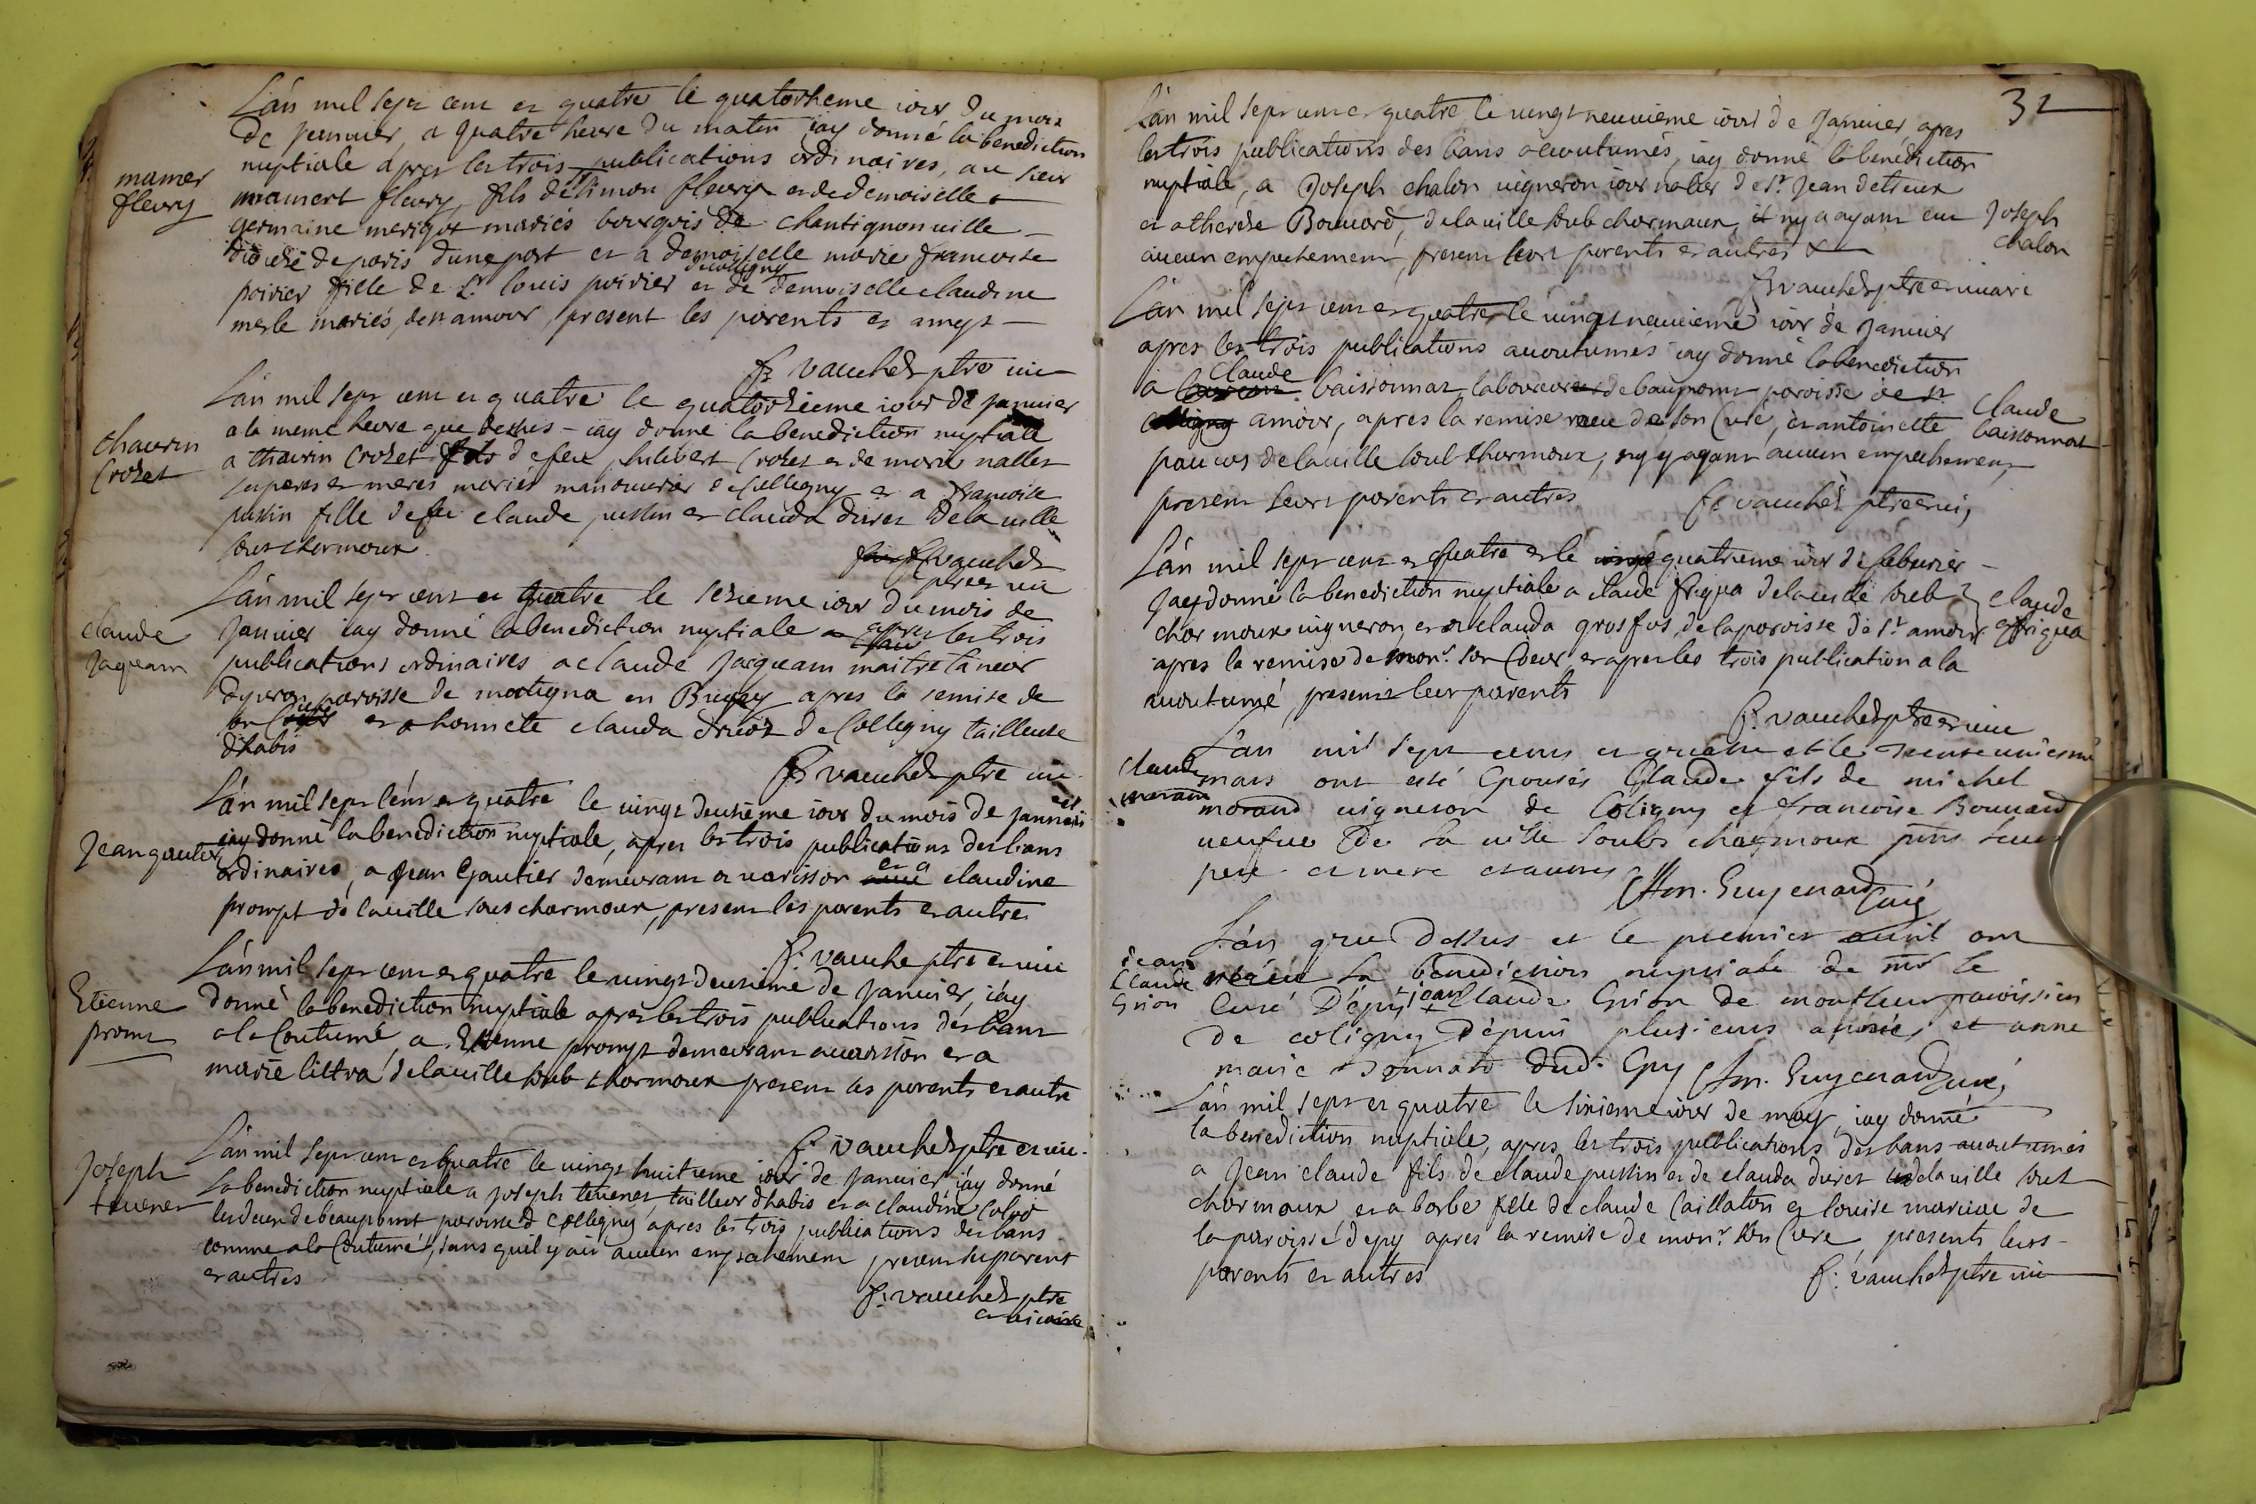 L'an mil sept cent et quatre le quatorheme iour du mois
de januier, a quatre heure du matin iay donné la benediction
nuptiale apres les trois publications ordinaires, au sieur
mamert fleury, fils de simon fleury et de demoiselle
germaine merigot mariés bourgois de chantignonuille
diocese de paris dune part et a demoiselle marie francoise
poirier fille de Sr louis poirier et de demoiselle claudine
merle mariés, de st amour, present les parents et amys
mamer
fleury
fr vauchez ptre uic
L'an mil sept cent et quatre le quatorzieme iour de januier
a la meme heure que dessus iay donné la benediction nuptiale
a thaurin Crozet fils de feu philibert Crozet et de marie nallet
ses peres et meres mariés manouurier de Colligny et a francoise
pussin fille de feu claude pussin et clauda duret de la uille
sous chormoux
thaurin
Crozet
fr vauchez
ptre et uic
L'an mil sept cent et quatre le sezieme iour du mois de
januier iay donné la benediction nuptiale apres les trois
publications ordinaires a claude Jaiquam maitre taneur
paroisse de martigna en Bugey apres la remise de
son Curé et a honnete clauda druot de Colligny tailleuse
dhabis
claude
Jaquam
fr vauchez ptre uic
L'an mil sept cent et quatre le uingt deusieme iour du mois de januier
iay donné la benediction nuptiale, apres les trois publications des bans
ordinaires, a Jean Gautier demeurant a uarisson et a claudine
prompt de la uille sous chormoux, present les parents et autre
Jean gautier
fr vauche ptre et uic
L'an mil sept cent et quatre le uingt deusieme de Januier, iay
donné la benediction nuptiale apres les trois publications des bans
a la Coutumé, a Etienne prompt demeurant a uarisson et a
marie littra de la uille soub chormoux present les parents et autre
Etienne
promt
fr vauchez ptre et uic
L'an mil sept cent et quatre le uingt huitieme iour de Januier iay donné
la benediction nuptiale a Joseph teuenet tailleur dhabis et a claudine
les deux de beaupont paroisse d Colligny apres les trois publications des bans
comme a la Coutumé, sans quil y ait aucun empechement present les parent
et autres
Joseph
teuenet
fr vauchez ptre
et uicaire
32
L'an mil sept cent et quatre le uingt neuuieme iour de Januier apres
les trois publications des bans acoutumés, iay donné la benediction
nuptiale, a Joseph chalon uigneron iournalier de St Jean detreux
et a therese Bouuard, de la uille soub chormoux, il ny a ayant eu
aucun empechement present leurs parents et autres
Joseph
chalon
fr vauchez ptre et uicaire
L'an mil sept cent et quatre le uingt neuuieme iour de Januier
apres les trois publications acoutumés iay donné la benediction
a Claude baissonnat laboureur de beaupont paroisse de St
amour, apres la remise receu de son Curé, et antoinette
de la uille soub chormoux, ny y ayant aucun empechement
present leurs parents et autres
Claude
baissonnat
fr vauchez ptre et uic
L'an mil sept cent et quatre et le quatrieme iour de feburier
Jay donné la benediction nuptiale a claude friqua de la uille soub
chormoux uigneron, et a clauda grosfos, de la paroisse de St amour
apres la remise de monr. son Cheur, et apres les trois publication a la
acoutumé, present leur parents
claude
friqua
fr vauchez ptre et uic
L'an mil sept cents et quatre et le trente unieme
mars ont esté épousés Claude fils de michel
morand uigneron de Coligny et francoise Bouuard
ueufue de la uille soubs charmoux pnts leurs
pere et mere et autres
Claude
morand
Guyenard Curé
L'an que dessus et le premier auril ont
receu la benediction nuptiale de mr le
Curé Dépy jean Claude Grion de montfleur paroissien
de coligny dépuis plusieurs années et anne
marie donnato dud. Epy Guyenard curé
Jean
Claude
Grion
L'an mil sept et quatre le sixieme iour de may, iay donné
la benediction nuptiale, apres les trois publications des bans acoutumés
a Jean claude fils de claude pussin et de clauda duret de la uille sous
chormoux et a barbe fille de claude Caillaton et louise de
la paroisse depy apres la remise de monr. son Cure, presents leurs
parents et autres
fr vauchez ptre uic